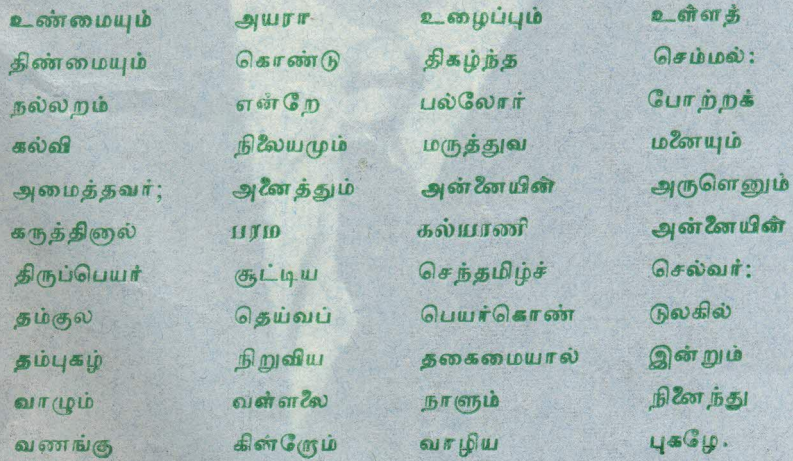 உண்மையும் அயரா உழைப்பும் உள்ளத்
திண்மையும் கொண்டு திகழ்ந்த செம்மல்:
நல்லறம் என்றே பல்லோர் போற்றக்
கல்வி நிலையமும் மருத்துவ மனையும்
அமைத்தவர்; அனைத்தும் அன்னையின் அருளெனும்
கருத்தினால் பரம கல்யாணி அன்னையின்
திருப்பெயர் சூட்டிய செந்தமிழ்ச் செல்வர்:
தம்குல தெய்வப் பெயர்கொண் டுலகில்
தம்புகழ் நிறுவிய தகைமையால் இன்றும்
வாழும் வள்ளலை நாளும் நினைந்து
வணங்கு கின்றோம் வாழிய புகழே.